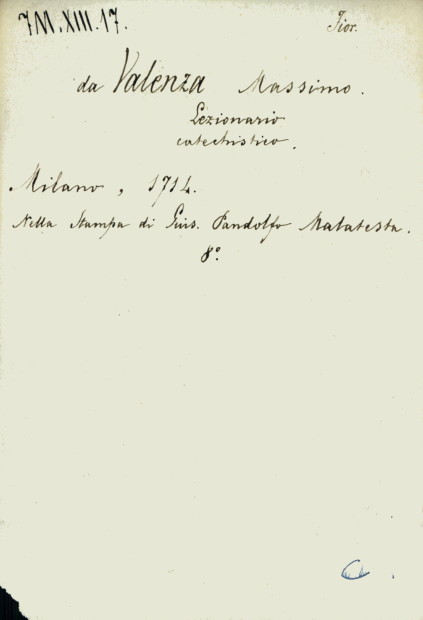 7M.XIII.17.
Fior.
da Valenza Massimo.
Lezionario
catechistico.
Milano, 1714.
Nella Stampa di Gius. Pandolfo Malatesta.
8°.